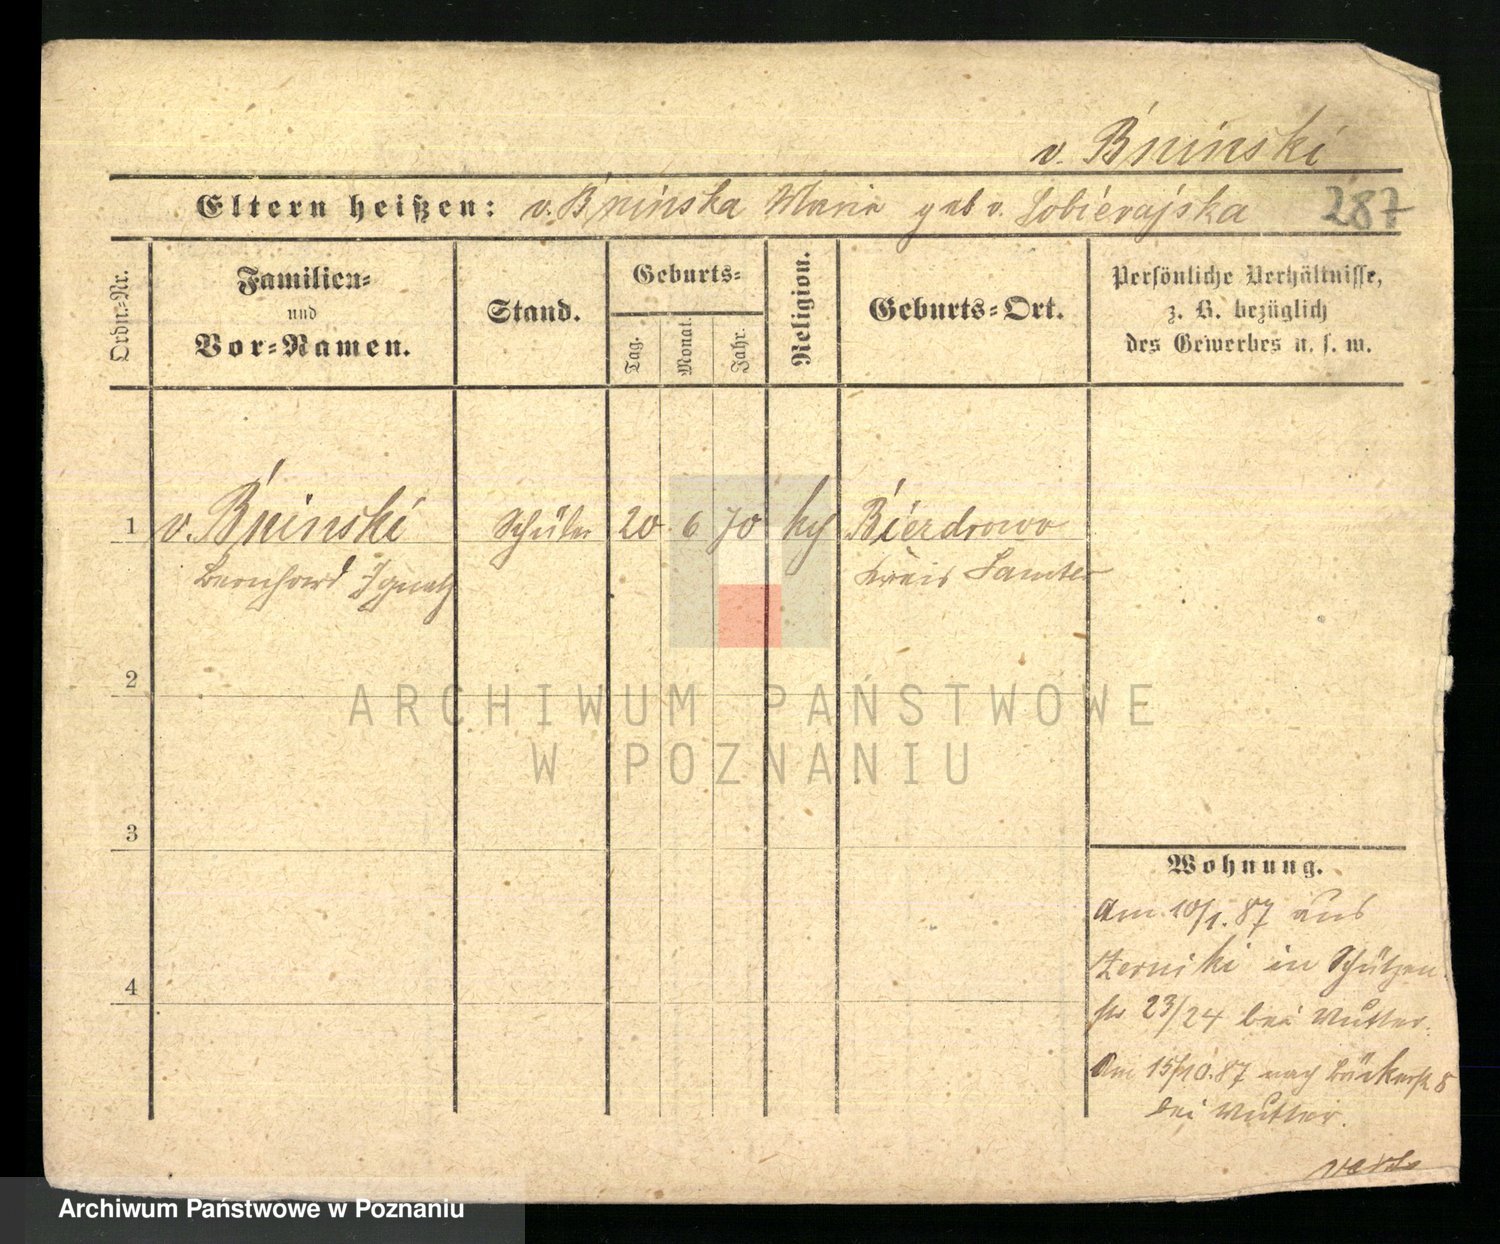 v. Bninski
Eltern heißen: v. Bninska Maria geb v. Sobierajska 287
Ordn.-Nr.
Familien-
und
Vor-Namen.
Stand.
Geburts-
Tag.
Monat.
Jahr.
Religion.
Geburts-Ort.
Persönliche Verhältnisse,
z. B. bezüglich
des Gewerbes u. s. w.
1 v. Bninski Schüler 20 6 70 Bierdrowo
Bernhard Ignatz Kreis Samter
2
3
4
Wohnung.
Am 10/1. 87 aus
Zerniki in Schützen
str 23/24 bei Mutter.
Am 15/10. 87 nach Bäckerstr 8
bei Mutter.
ARCHIWUM PAŃSTWOWE
W POZNANIU
Archiwum Państwowe w Poznaniu